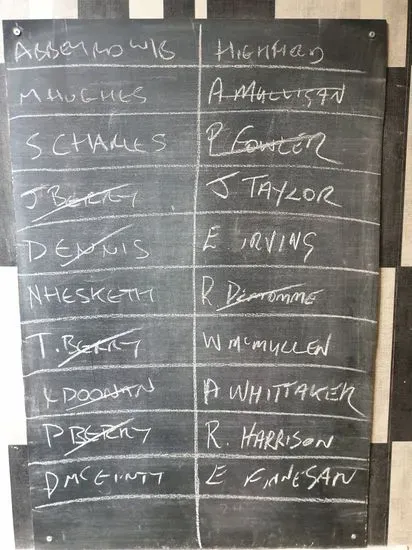 HIGHFIELD
M HUGHES A MULLIGAN
S CHARLES P FOWLER
J BERRY J TAYLOR
DENNIS E IRVING
N HESKETH R
T. BERRY W McMULLEN
DOONAN A WHITTAKER
P BERRY R. HARRISON
D McGINTY E FINNEGAN